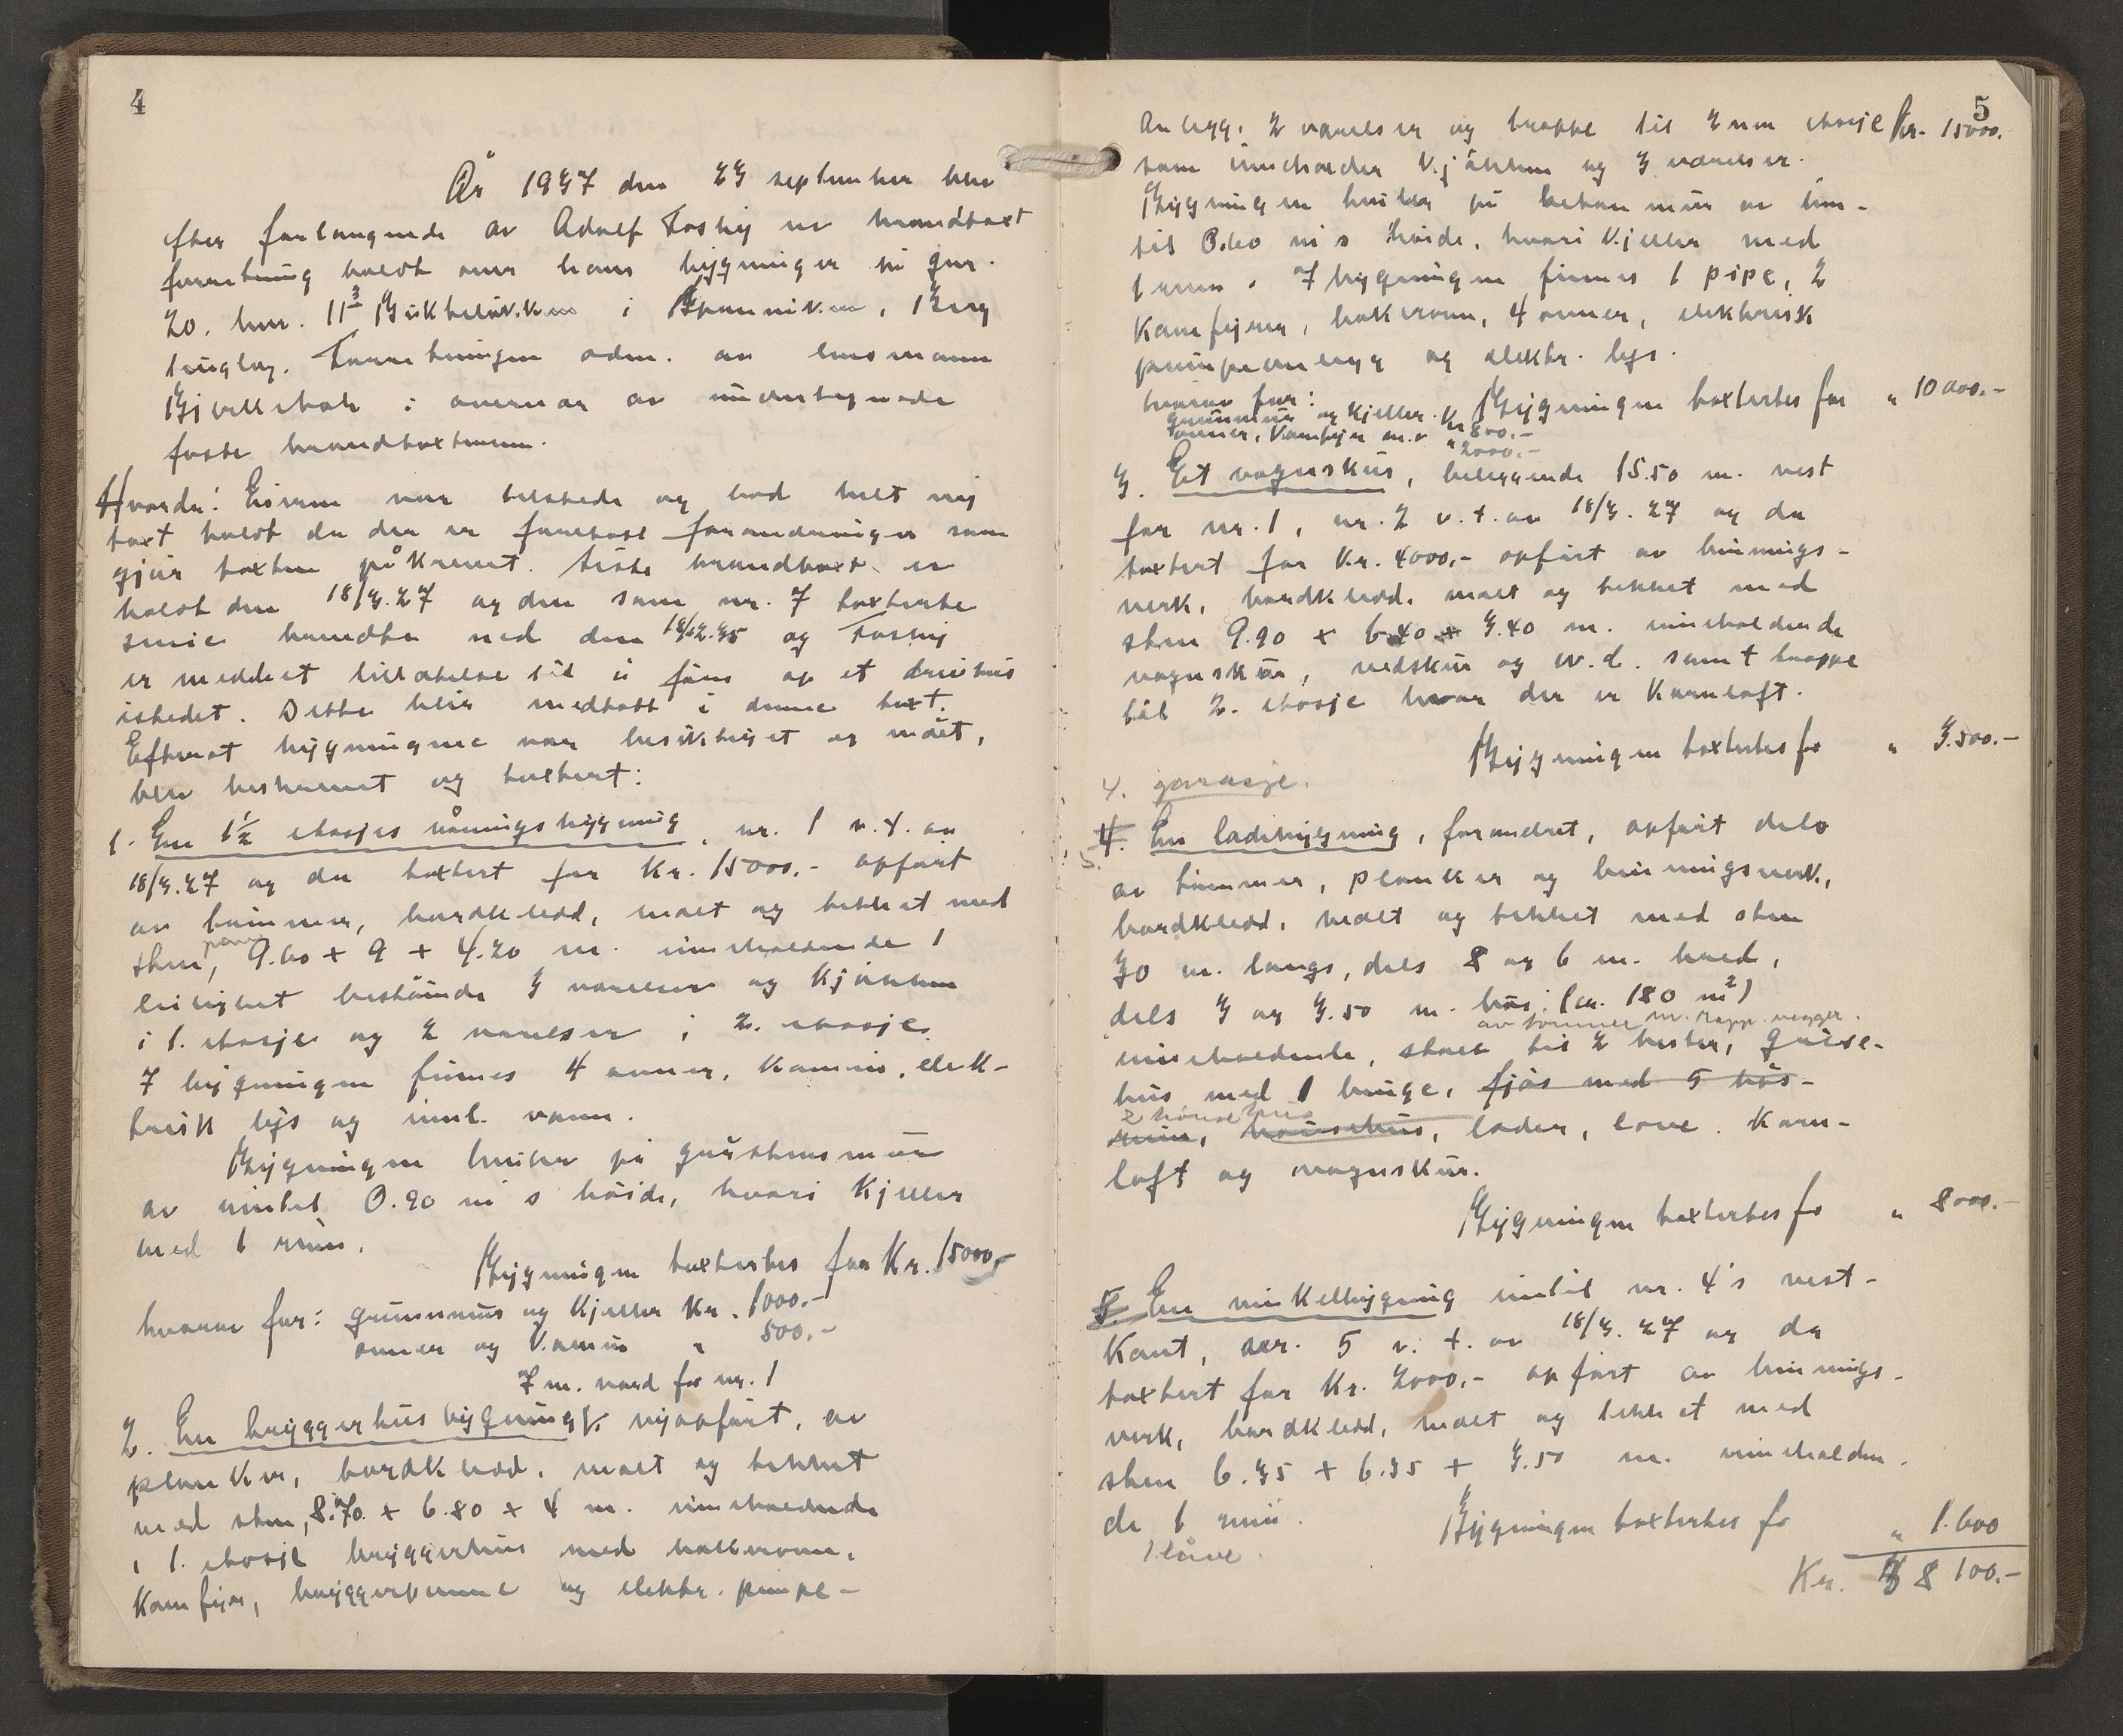 4
År 1937 den 23 september blev
efter forlangende av Adolf Fosby en brandtaxt
forretning holdt over hans bygninger på gnr.
20. bnr. 11³ i Sponviken, Berg
tinglag. Forretningen adm. av lensmann
i overvær av undertegnede
faste brandtaxtmenn.
Hvorda: Eieren var tilstede og bad helt ny
taxt holdt da der er foretatt forandringer som
gjør taxten påkrevet. Siste brandtaxt er
holdt den 18/3.27 og den som nr. 7 taxterte
smie brendte ned den 18/12.35 og Fosby
er meddelt tillatelse til å føre op et drivhus
istedet. Dette blir medtatt i denne taxt.
Efterat bygningene var besiktiget og målt,
blev beskrevet og taxtert:
1. En 1½ etasjes våningsbygning, nr. 1 v. t. av
18/3.27 og da taxtert for Kr. 15000.- opført
av tømmer, bordkledd, malt og tekket med
sten, 9.60 + 9 + 4.20 m. inneholdende 1
leilighet bestående 3 værelser og kjøkken
i 1. etasje og 2 værelser i 2. etasje.
I bygningen finnes 4 ovner, kamin, elek-
trisk lys og innl. vann.
Bygningen hviler på gråstensmur
av inntil 0.90 m's høide, hvori kjeller
med 1 rum.
Bygningen taxtertes for Kr. 15000.-
hvorav for: grunnmur og kjeller Kr. 1000.-
ovner og kamin " 500.-
7 m. nord for nr. 1
2. En bryggerhusbygning, nyopført, av
planker, bordkledd, malt og tekket
med sten, 8.70 + 6.80 + 4 m. inneholdende
i 1. etasje bryggerhus med bakerovn,
komfyr, bryggerpanne og elektr. pumpe-
5
anlegg, 2 værelser og trappe til 2nen etasje Kr. 15000.
som inneholder kjøkken og 3 værelser.
Bygningen hviler på betonmur av inn-
til 0.60 m's høide, hvori kjeller med
1 rum. I bygningen finnes 1 pipe, 2
komfyrer, bakerovn, 4 ovner, elektrisk
pumpeanlegg og elektr. lys.
hvorav for: Bygningen taxtertes for " 10 000.-
grunnmur og kjeller Kr. 800.-
ovner, komfyr m.v. " 2000.-
3. Et vognskur, beliggende 15.50 m. vest
for nr. 1, nr. 2 v. t. av 18/3.27 og da
taxtert for Kr. 4000.- opført av binnings-
verk, bordkledd, malt og tekket med
sten 9.90 + 6.40 + 3.40 m. inneholdende
vognskur, vedskur og w.c. samt trappe
til 2. etasje hvor der er kornloft.
Bygningen taxtertes fo " 3.500.-
4. garasje.
4. 5. En ladebygning, forandret, opført dels
av tømmer, planker og binningsverk,
bordkledd, malt og tekket med sten
30 m. langs, dels 8 og 6 m. bred,
dels 3 og 3.50 m. høi, (ca. 180 m²)
av tømmer m. rapp. vegger.
inneholdende, stall til 2 hester, grise-
hus med 1 binge, fjøs med 5 bås-
2 hønsehus
rum, hønsehus, lader, love, korn-
loft og vognskur.
Bygningen taxtertes fo " 8000.-
5. En vinkelbygning inntil nr. 4's vest-
kant, nr. 5 v. t. av 18/3.27 og da
taxtert for Kr. 2000.- opført av binnings-
verk, bordkledd, malt og tekket med
sten 6.35 + 6.35 + 3.50 m. inneholden-
de 1 rum. Bygningen taxtertes fo " 1.600
1 låve. Kr. 38 100.-